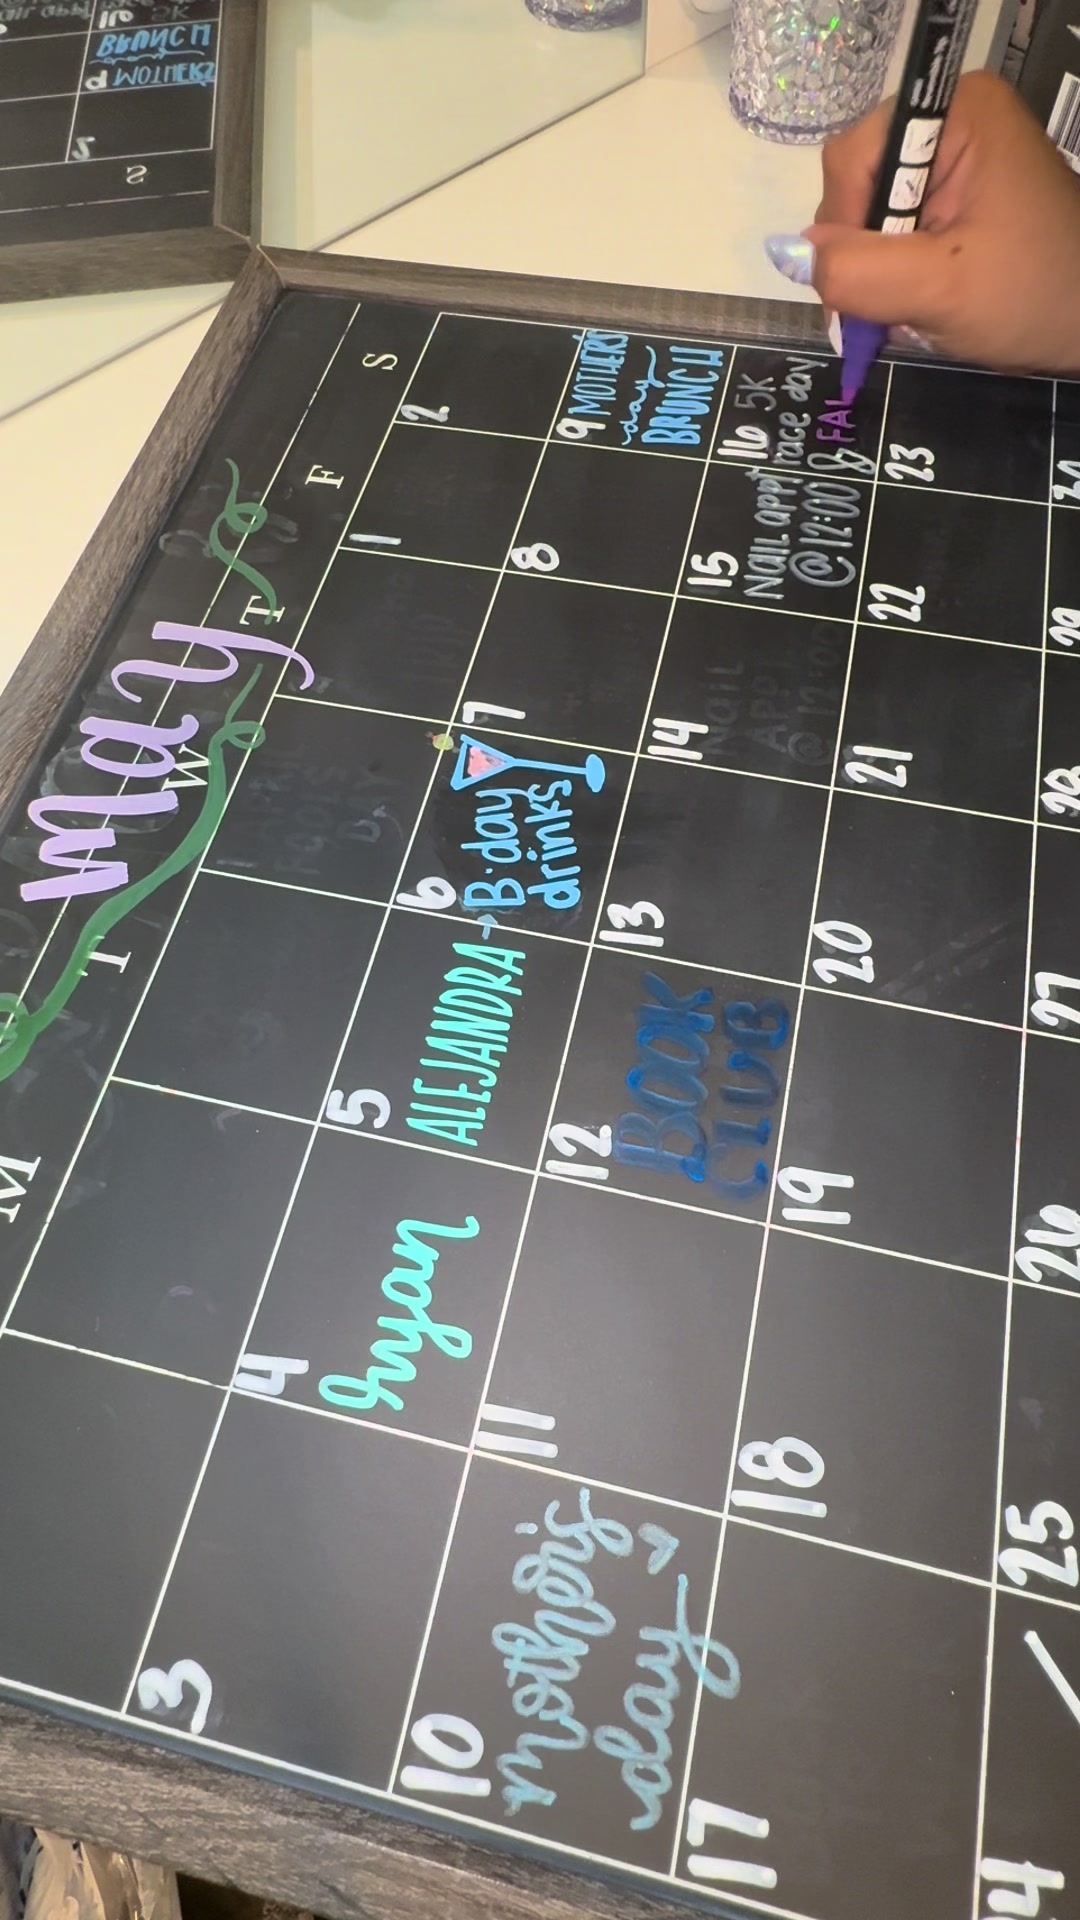 may
M
T
W
T
F
S
1
2
3
4
Ryan
5
ALEJANDRA
6
B·day
drinks
7
8
9 MOTHERS
day
BRUNCH
10
mother's
day
11
12
BOOK
CLUB
13
14
NAIL
APPT
@ 12:00
15
Nail appt
@ 12:00
16 5K
race day
& FA
17
18
19
20
21
22
23
25
26
27
28
29
30
S
2
9 MOTHERS
BRUNCH
16 5K